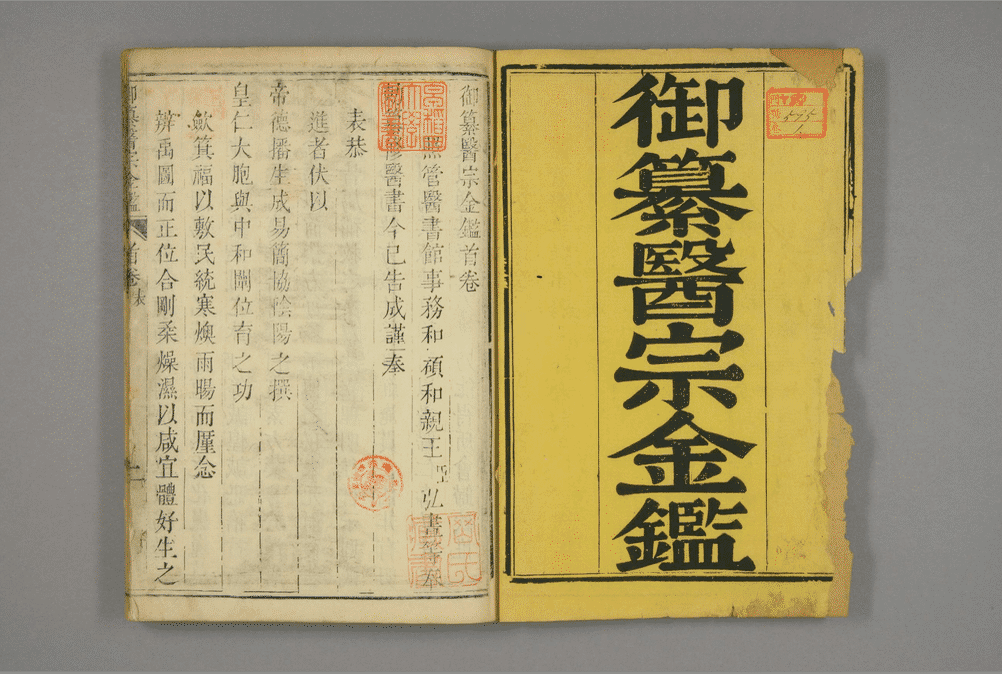 御纂醫宗金鑑
御纂醫宗金鑑首卷
照管醫書館事務和碩和親王臣弘晝等奉
勅纂修醫書今已告成謹奉
表恭
進者伏以
帝德播生成易簡協陰陽之撰
皇仁大胞與中和闡位育之功
歛箕福以敷民統寒燠雨暘而厪念
辨禹圖而正位合剛柔燥濕以咸宜體好生之
御纂醫宗金鑑 首卷 表
早稻田大學